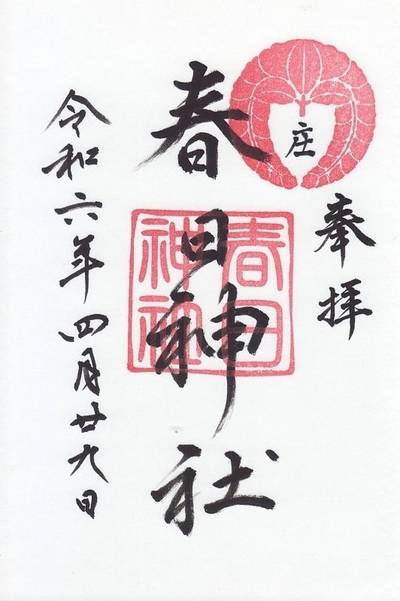 奉拝
庄
春日神社
春日
神社
令和六年四月廿九日